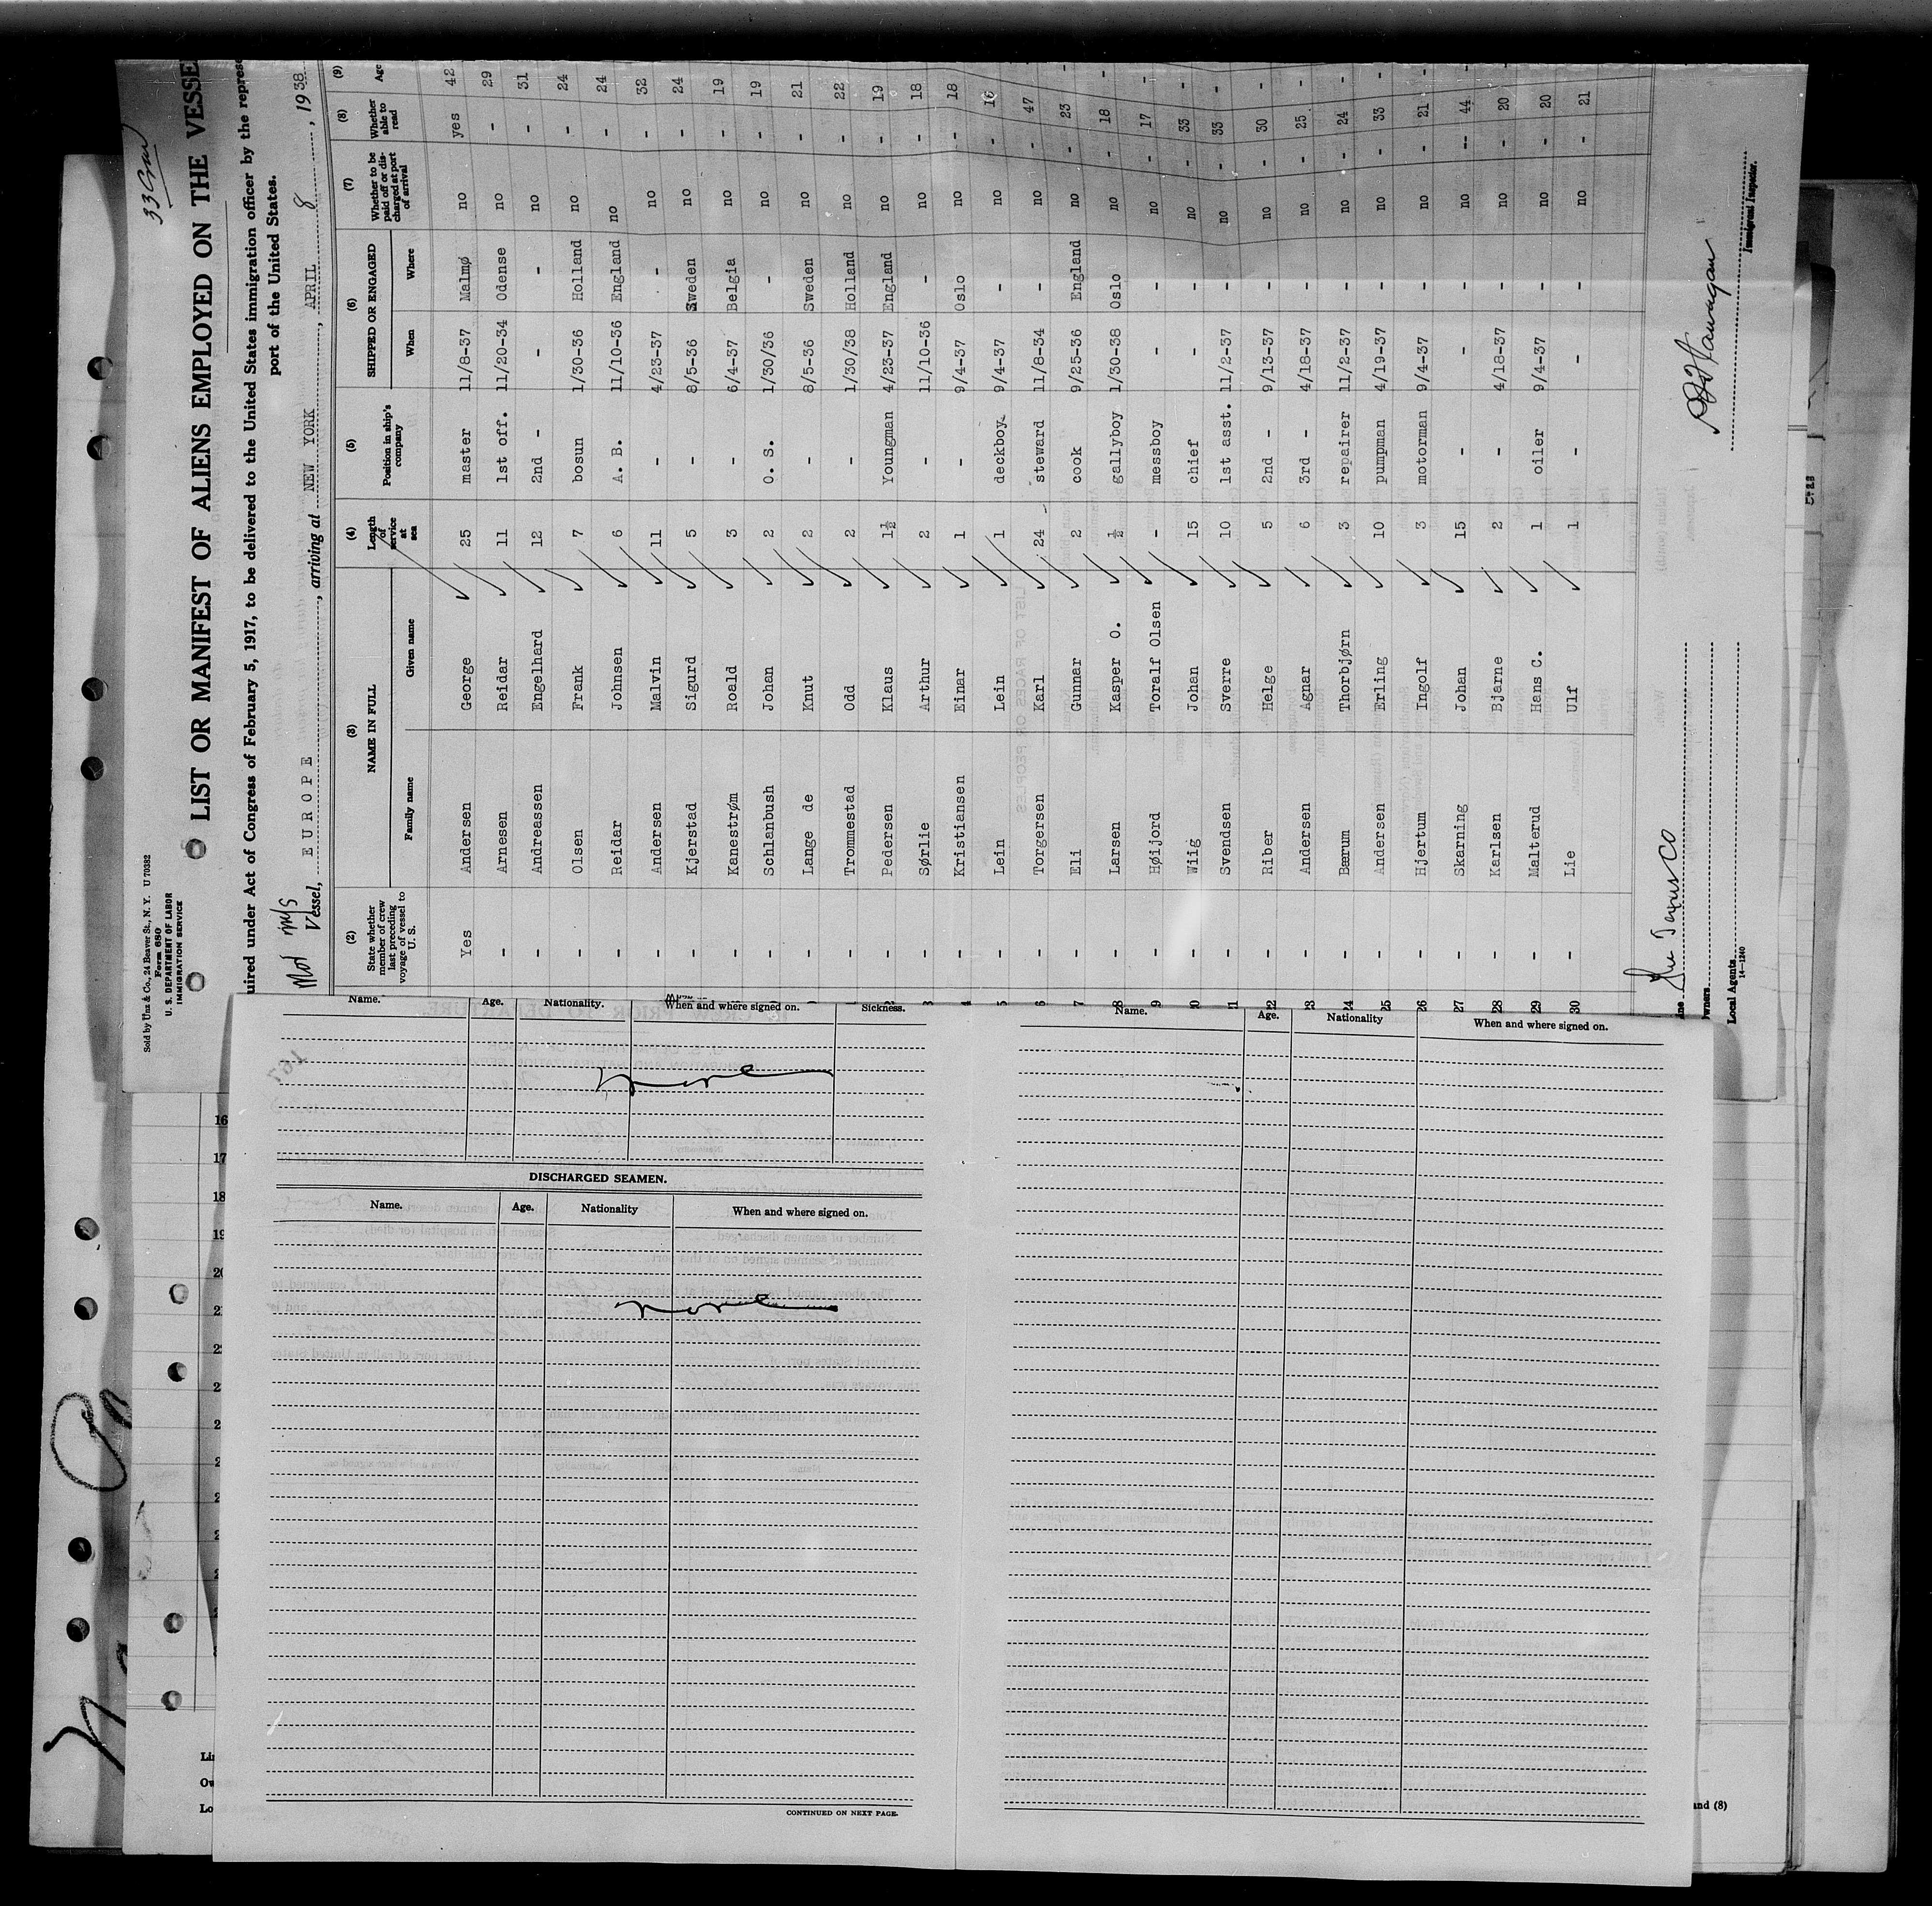 33 Crew
Sold by Unz & Co., 24 Beaver St., N. Y. U 70392
Form 680
U. S. DEPARTMENT OF LABOR
IMMIGRATION SERVICE
LIST OR MANIFEST OF ALIENS EMPLOYED ON THE VESSE
uired under Act of Congress of February 5, 1917, to be delivered to the United States immigration officer by the represe
port of the United States.
Mot M/S
Vessel, EUROPE, arriving at NEW YORK, APRIL 8, 1938
(2) (3) (4) (5) (6) (7) (8) (9)
State whether member of crew last preceding voyage of vessel to U. S. NAME IN FULL Family name Given name Length of service at sea Position in ship's company SHIPPED OR ENGAGED When Where Whether to be paid off or discharged at port of arrival Whether able to read Age
Yes Andersen George 25 master 11/8-37 Malmø no yes 42
- Arnesen Reidar 11 1st off. 11/20-34 Odense no - 29
- Andreassen Engelhard 12 2nd - - - no - 31
- Olsen Frank 7 bosun 1/30-36 Holland no - 24
- Reidar Johnsen 6 A. B. 11/10-36 England no - 24
- Andersen Malvin 11 - 4/23-37 - no - 32
- Kjerstad Sigurd 5 - 8/5-36 Sweden no - 24
- Kanestrøm Roald 3 - 6/4-37 Belgia no - 19
- Schlanbush Johan 2 O. S. 1/30/36 - no - 19
- Lange de Knut 2 - 8/5-36 Sweden no - 21
- Trommestad Odd 2 - 1/30/38 Holland no - 22
- Pedersen Klaus 1½ Youngman 4/23-37 England no - 19
3 - Sørlie Arthur 2 - 11/10-36 - no - 18
4 - Kristiansen Einar 1 - 9/4-37 Oslo no - 18
5 - Lein Lein 1 deckboy 9/4-37 - no - 16
6 - Torgersen Karl 24 steward 11/8-34 - no - 47
7 - Eli Gunnar 2 cook 9/25-36 England no - 23 -
8 - Larsen Kasper O. ½ gallyboy 1/30-38 Oslo no - 18 -
9 - Høijord Toralf Olsen - messboy - - no - 17 -
10 - Wiig Johan 15 chief - - no - 33 -
11 - Svendsen Sverre 10 1st asst. 11/2-37 - no - 33 -
22 - Riber Helge 5 2nd - 9/13-37 - no - 30 -
23 - Andersen Agnar 6 3rd - 4/18-37 - no - 25 -
24 - Bærum Thorbjørn 3 repairer 11/2-37 - no - 24 -
25 - Andersen Erling 10 pumpman 4/19-37 - no - 33 -
26 - Hjertum Ingolf 3 motorman 9/4-37 - no - 21 -
27 - Skarning Johan 15 - - - no -- 44 -
28 - Karlsen Bjarne 2 - 4/18-37 - no - 20 -
29 - Malterud Hans C. 1 oiler 9/4-37 - no - 20 -
30 - Lie Ulf 1 - - - no - 21
ine The Texas Co
wners
Local Agents
14-1240
Immigrant Inspector.
Name. Age. Nationality. When and where signed on. Sickness.
none
DISCHARGED SEAMEN.
Name. Age. Nationality When and where signed on.
none
CONTINUED ON NEXT PAGE.
Name. Age. Nationality When and where signed on.
16
17
18
19
Li
Ow
Lo
and (8)